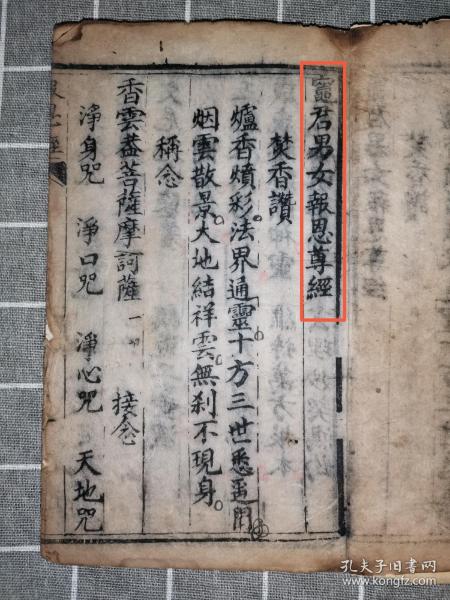 靈君男女報恩尊經
焚香讚
爐香熉彩法界通靈十方三世悉遥聞
烟雲散景大地結祥雲無刹不現身
稱念
香雲蓋菩薩摩訶薩 接念
淨身咒 淨口咒 淨心咒 天地咒
孔夫子旧书网
kongfz.com